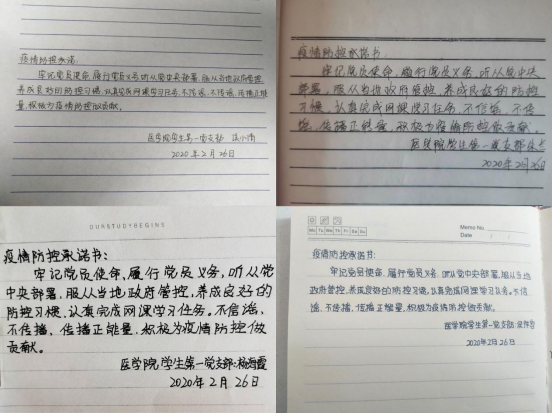 疫情防控承诺.
牢记党员使命,履行党员义务,听从党中央部署,服从当地政府管控,
养成良好的防控习惯,认真完成网课学习任务,不信谣,不传谣,传播正能
量,积极为疫情防控做贡献。
医学院学生第一党支部
2020年2月26日
疫情防控承诺书.
牢记党员使命,履行党员义务,听从党中央
部署,服从当地政府管控,养成良好的防控
习惯,认真完成网课学习任务,不信谣,不传
谣,传播正能量,积极为疫情防控做贡献.
医学院学生第一党支部
2020年2月26日
OURSTUDYBEGINS
疫情防控承诺书:
牢记党员使命,履行党员义务,听从党
中央部署,服从当地政府管控,养成良好的
防控习惯,认真完成网课学习任务。不信谣,
不传播,传播正能量,积极为疫情防控做
贡献。
医学院学生第一党支部:杨海霞
2020年2月26日
Memo No.
Mo Tu We Th Fr Sa Su
Date / /
疫情防控承诺书:
牢记党员使命、履行党员义务、听从党中央部署、服从当地
政府管控、养成良好的防控习惯,认真完成网课学习任务。不信
谣、不传播、传播正能量、积极为疫情防控做贡献。
医学院学生第一党支部
2020年2月26日